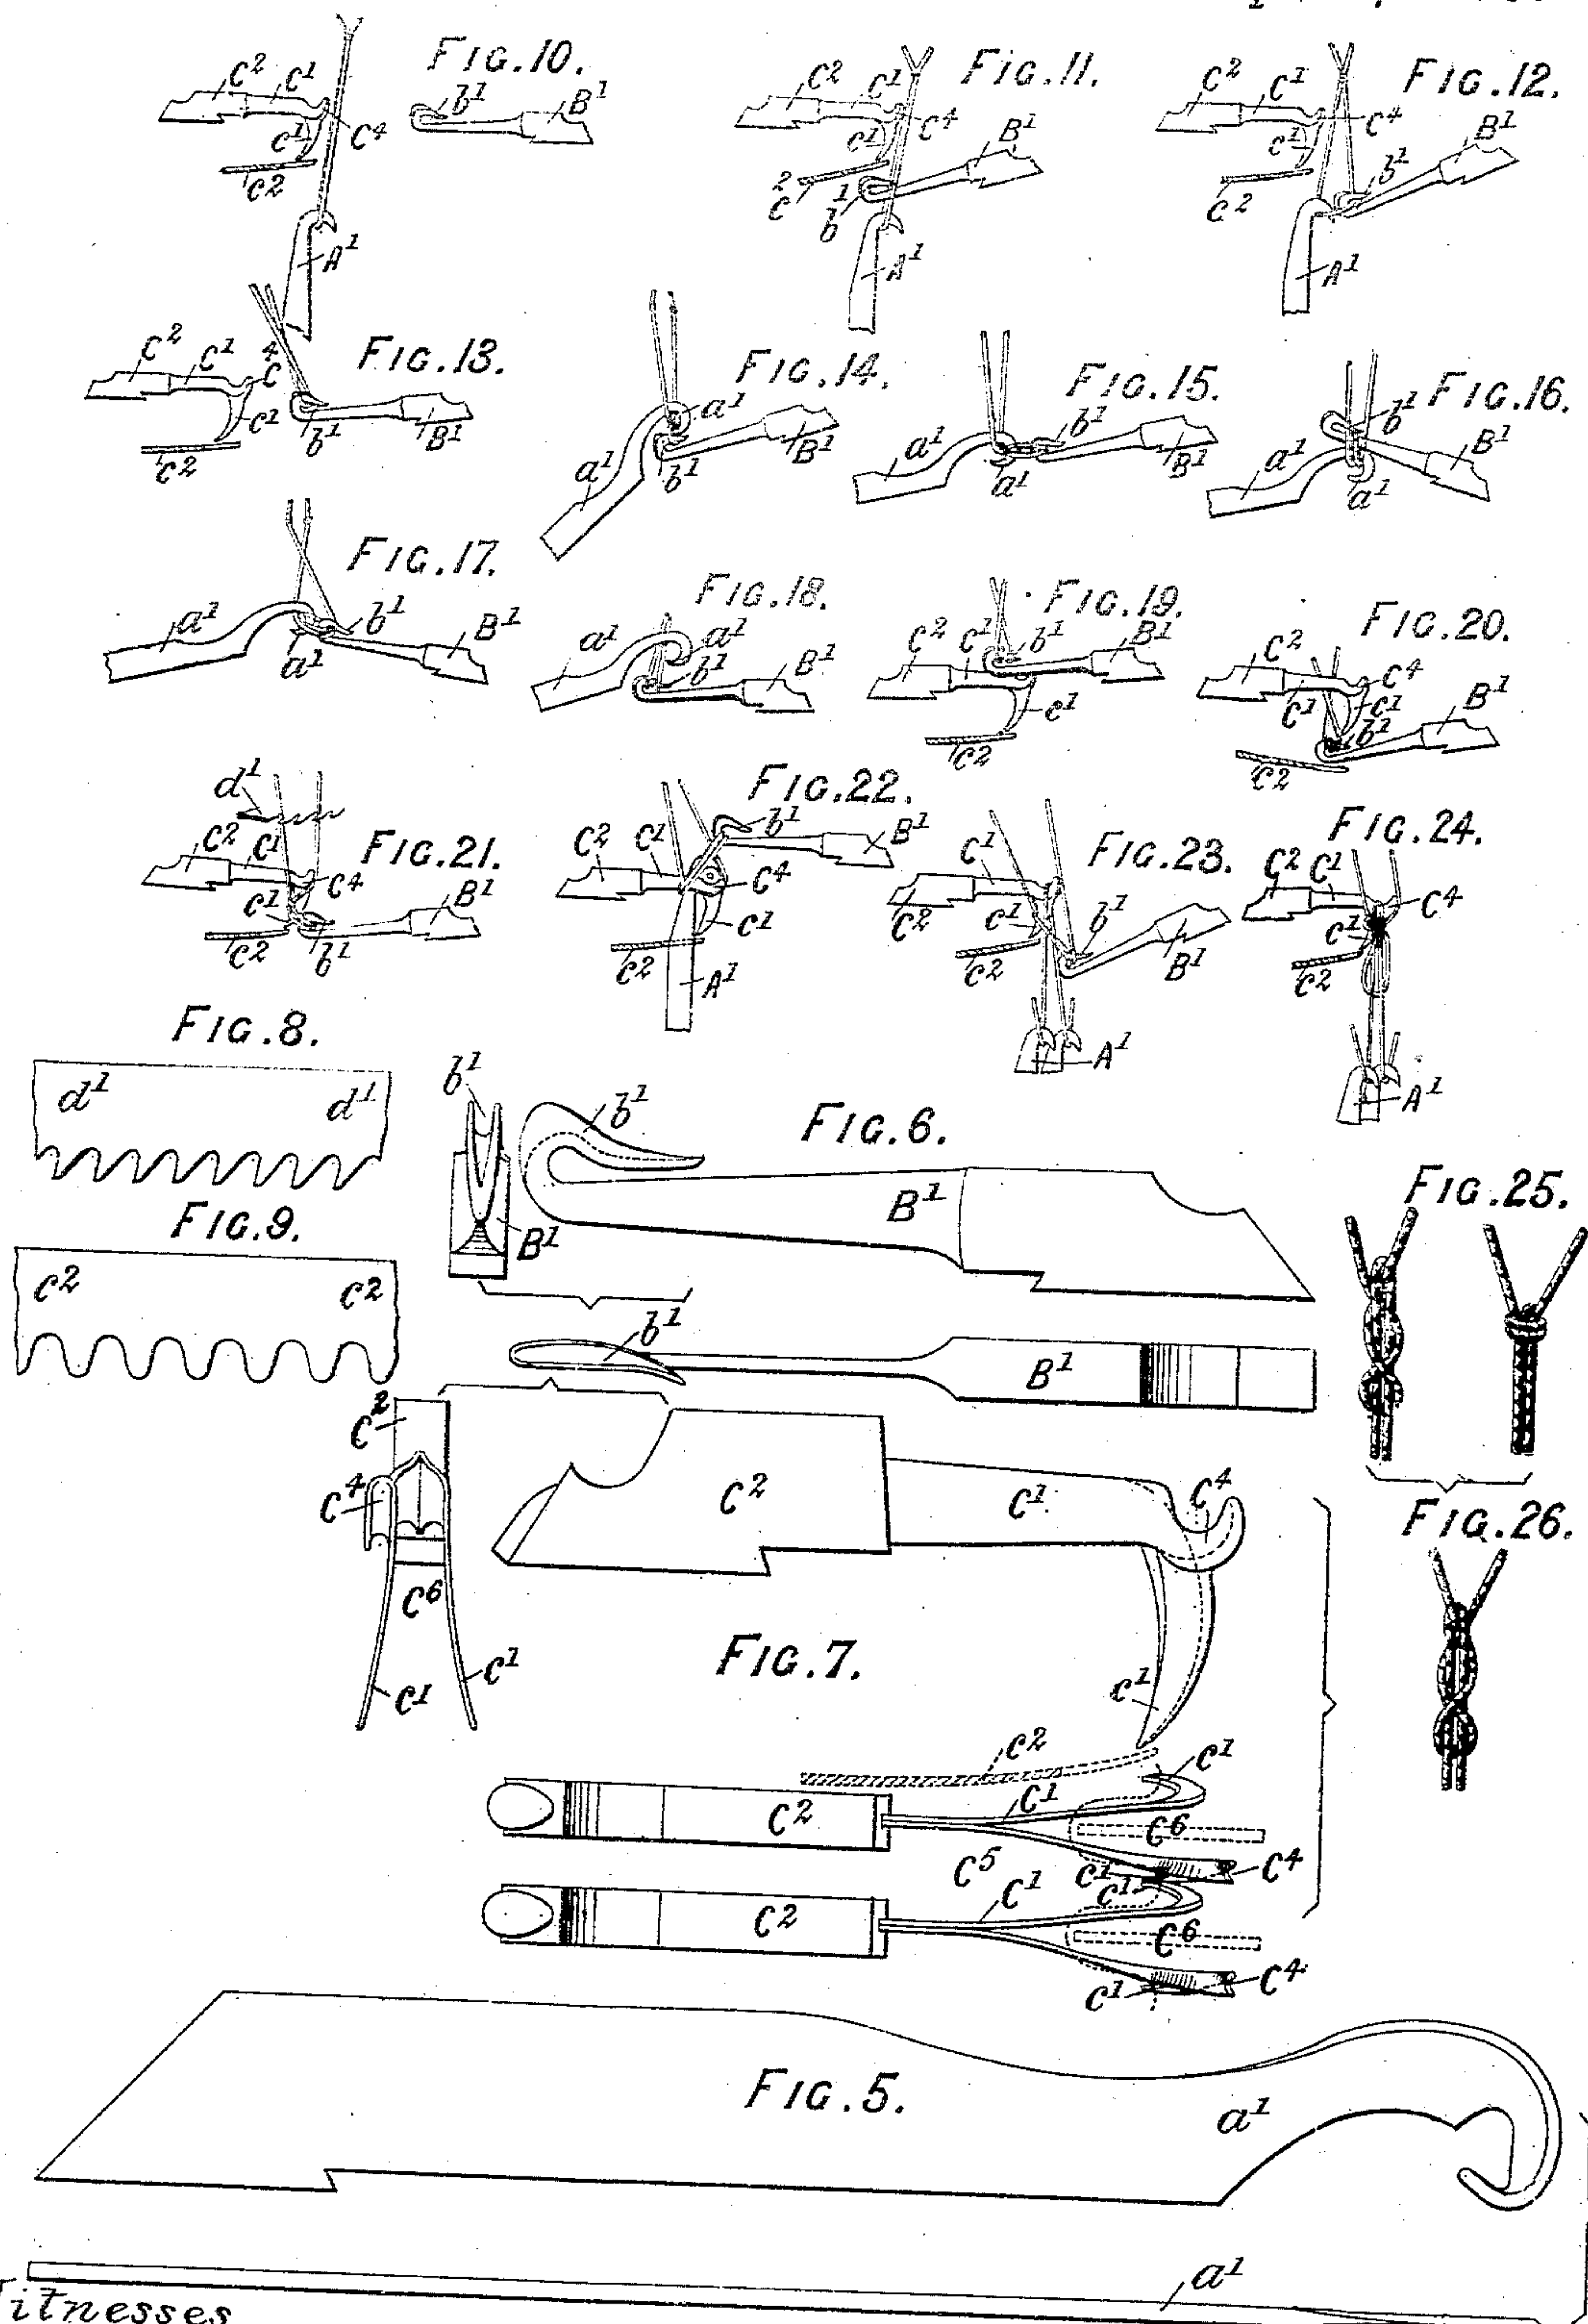 FIG. 10.
C² C¹ C⁴ c¹ c² A¹ b¹ B¹
FIG. 11.
C² C¹ C⁴ c¹ c² b¹ B¹ A¹
FIG. 12.
C² C¹ C⁴ c¹ c² b¹ B¹ A¹
FIG. 13.
C² C¹ C⁴ c¹ c² b¹ B¹
FIG. 14.
a¹ a¹ b¹ B¹
FIG. 15.
a¹ a¹ b¹ B¹
FIG. 16.
a¹ a¹ b¹ B¹
FIG. 17.
a¹ a¹ b¹ B¹
FIG. 18.
a¹ a¹ b¹ B¹
FIG. 19.
C² C¹ b¹ B¹ c¹ c²
FIG. 20.
C² C¹ C⁴ c¹ b¹ B¹ c²
FIG. 21.
d¹ C² C¹ C⁴ c¹ c² b¹ B¹
FIG. 22.
C² C¹ C⁴ c¹ c² b¹ B¹ A¹
FIG. 23.
C¹ C² c¹ c² b¹ B¹ A¹
FIG. 24.
C² C¹ C⁴ c¹ c² A¹
FIG. 8.
d¹ d¹
FIG. 9.
c² c²
FIG. 6.
b¹ b¹ B¹ B¹
b¹ B¹
FIG. 25.
FIG. 26.
FIG. 7.
C² C⁴ C⁶ c¹ c¹
C² C¹ C⁴ c¹
c² c¹
C² C¹ C⁶ C⁴ c¹
C⁵
C² C¹ c¹ C⁶ C⁴ c¹
FIG. 5.
a¹
a¹
Witnesses